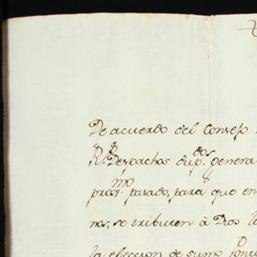 De acuerdo del Consejo
Rs. Despachos dup.dos genera
pro.mo pasado, para que en
nos, se exibiesen à Dios l
la eleccion de sumo Pon